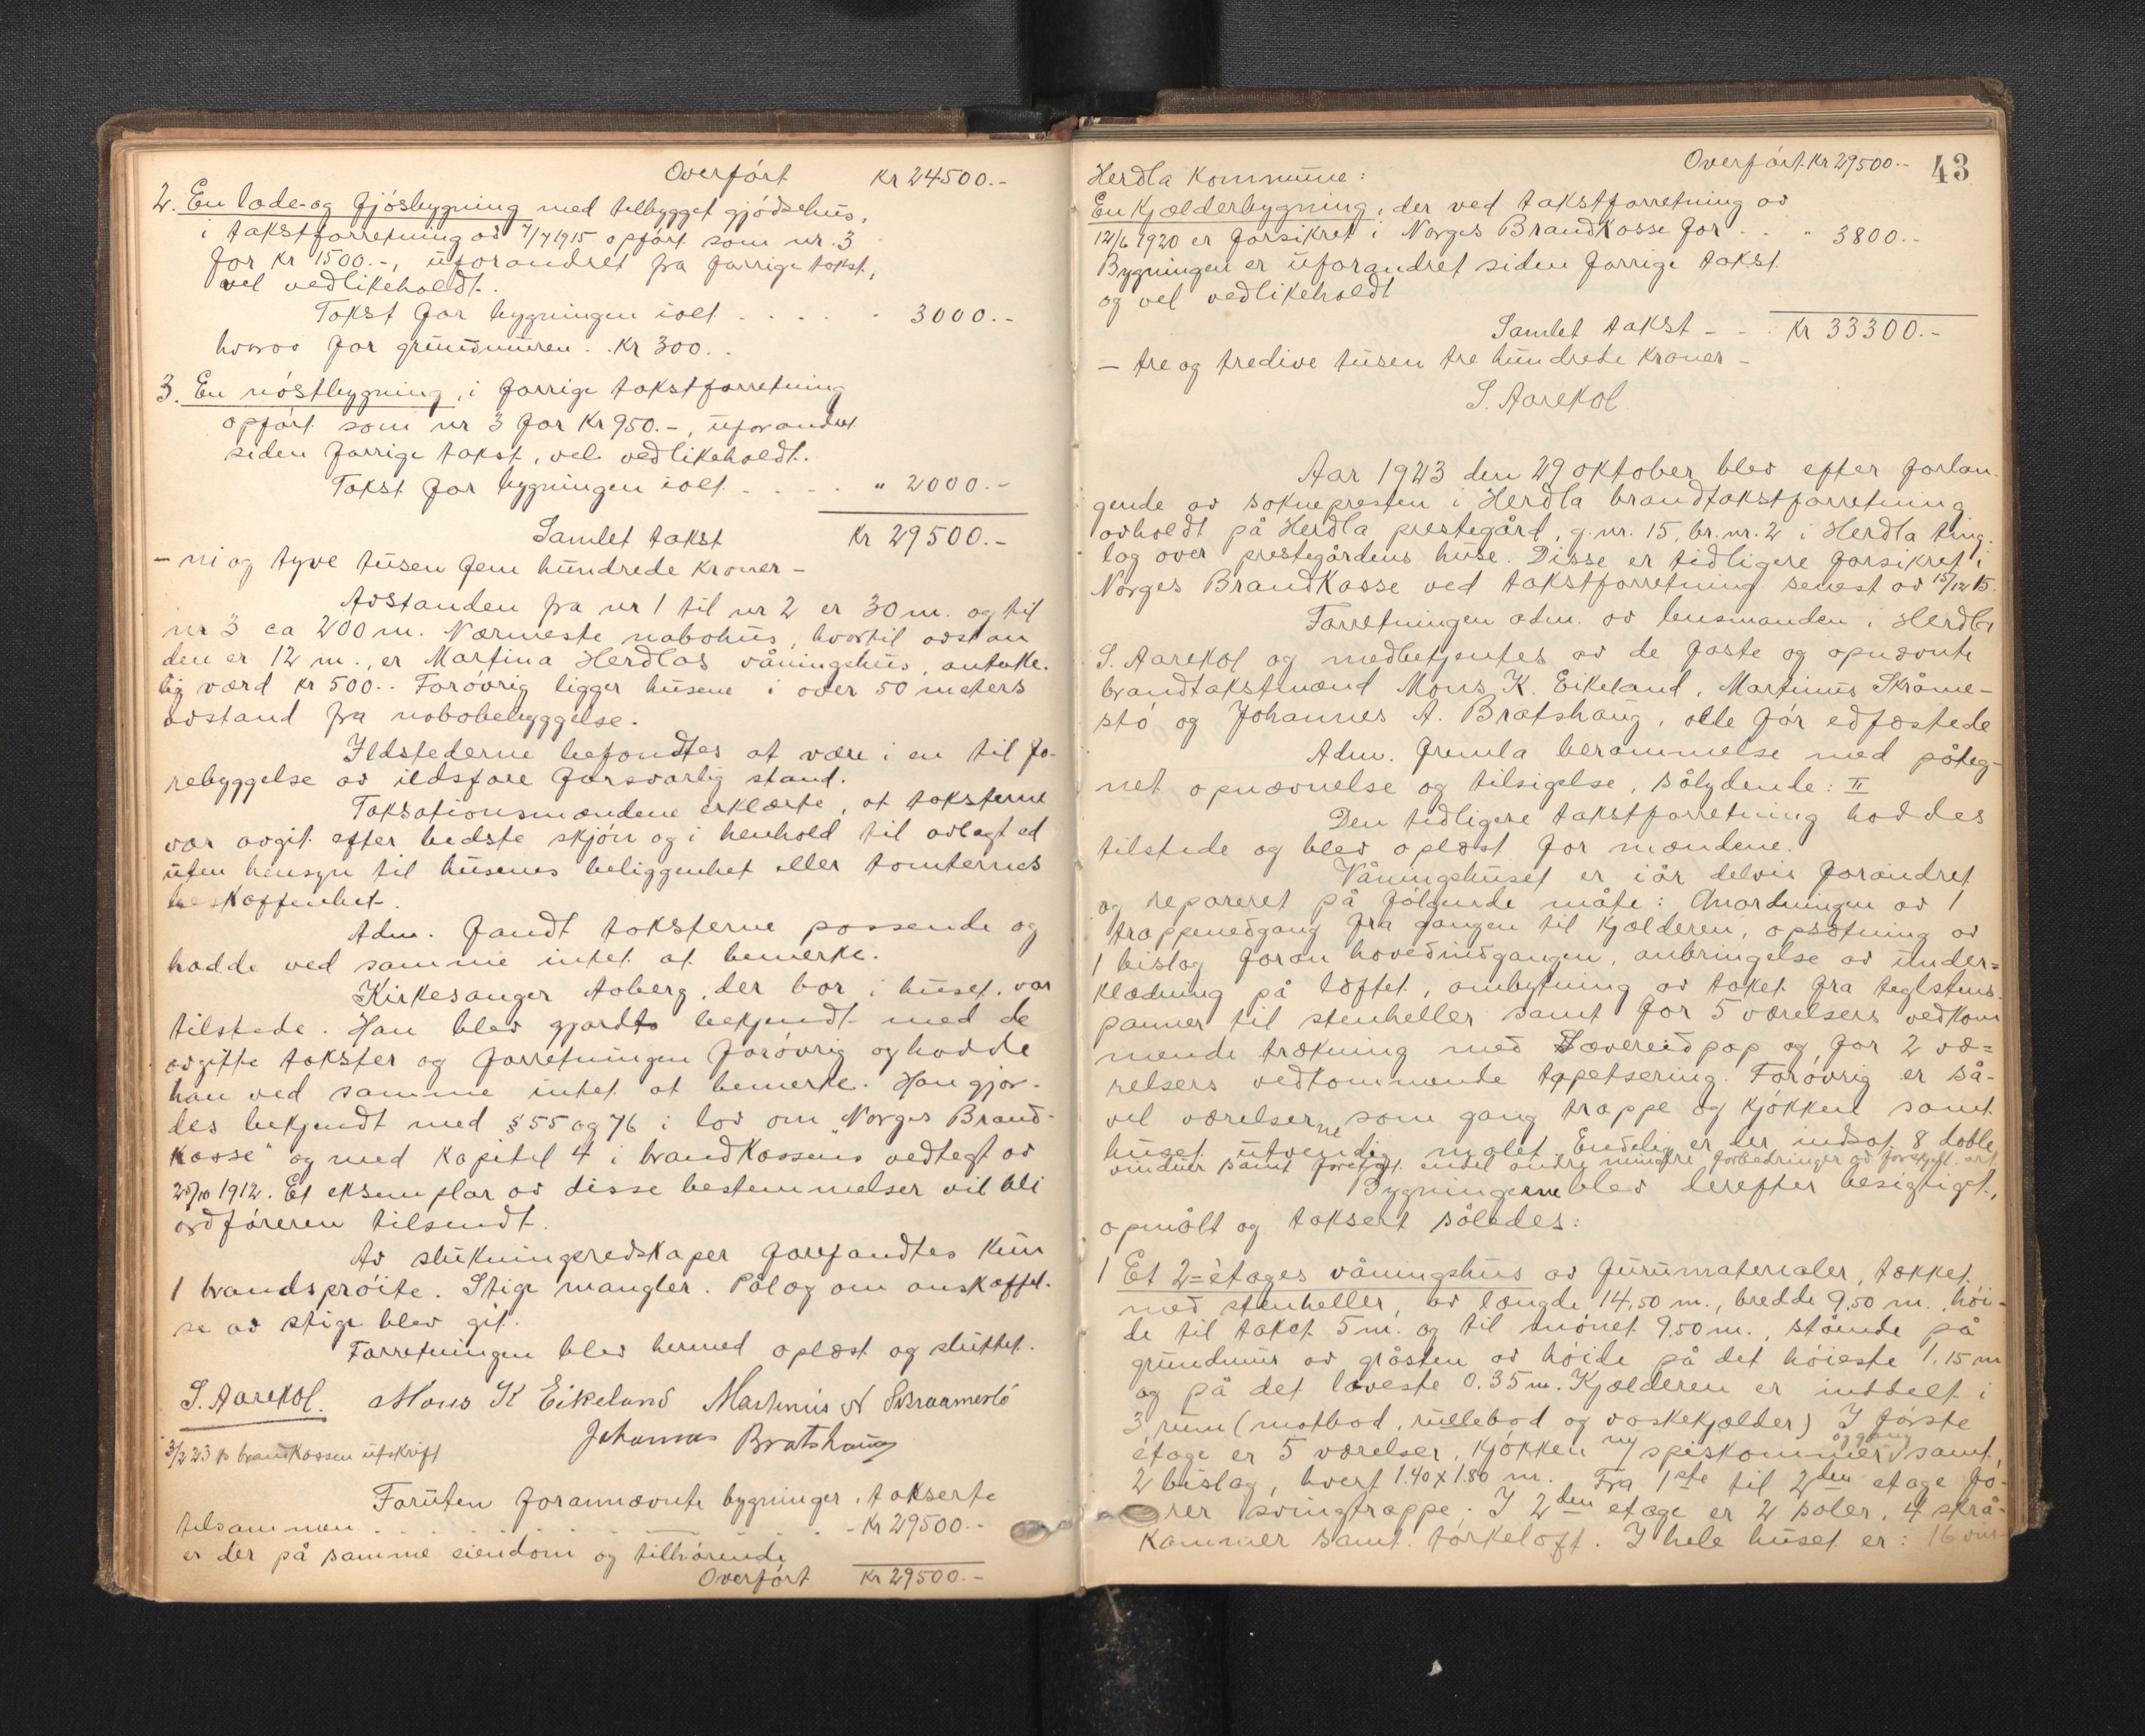 Overført Kr 24500.-
2. En lade- og fjøsbygning med tilbygget gjødselhus,
i takstforretning av 7/7 1915 opført som nr. 3
for kr 1500.-, uforandret fra forrige takst,
vel vedlikeholdt.
Takst for bygningen ialt . . . . . 3000.-
hvorav for grundmuren . . Kr 300. .
3. En nøstbygning, i forrige takstforretning
opført som nr 3 for Kr 950.-, uforandret
siden forrige takst, vel vedlikeholdt.
Takst for bygningen ialt . . . . " 2000.-
Samlet takst Kr 29500.-
- ni og tyve tusen fem hundrede kroner -
Avstanden fra nr 1 til nr 2 er 30 m. og til
nr 3 ca 200 m. Nærmeste nabohus, hvortil avstan
den er 12 m., er Martina Herdlas våningshus, antake-
lig værd kr 500.- Forøvrig ligger husene i over 50 meters
avstand fra nabobebyggelse.
Ildstederne befandtes at være i en til fo-
rebyggelse av ildsfare forsvarlig stand.
Taksationsmændene erklærte, at taksterne
var avgit efter bedste skjøn og i henhold til avlagt ed
uten hensyn til husenes beliggenhet eller tomternes
beskaffenhet.
Adm. fandt taksterne passende og
hadde ved samme intet at bemerke.
Kirkesanger Aaberg, der bor i huset, var
tilstede. Han blev gjordt bekjendt med de
avgitte takster og forretningen forøvrig og hadde
han ved samme intet at bemerke. Han gjor-
des bekjendt med § 55 og 76 i lov om "Norges Brand-
kasse" og med kapitel 4 i brandkassens vedtegt av
25/10 1912. Et eksemplar av disse bestemmelser vil bli
ordføreren tilsendt.
Av slukningsredskaper forefandtes kun
1 brandsprøite. Stige mangler. Pålæg om anskaffel-
se av stige blev git.
Forretningen blev hermed oplæst og sluttet.
S. Aarekol. Mons K Eikeland Martinus N Skraamestø
Johannes Bratshaug
3/2 23 p brandkassen utskrift
Foruten forannævnte bygninger, takserte
tilsammen . . . . . . . . Kr 29500.-
er der på samme eiendom og tilhørende
Overført Kr 29500.-
Overført. Kr 29500.- 43
Herdla kommune:
En kjælderbygning, der ved takstforretning av
12/6 1920 er forsikret i Norges Brandkasse for . . " 3800.-
Bygningen er uforandret siden forrige takst
og vel vedlikeholdt
Samlet takst - - Kr 33300.-
- tre og tredive tusen tre hundrede kroner -
S. Aarekol.
Aar 1923 den 29 oktober blev efter forlan-
gende av sokneprester i Herdla brandtakstforretning
avholdt på Herdla prestegård, g.nr. 15, br.nr. 2 i Herdla ting-
lag over prestegårdens huse. Disse er tidligere forsikret i
Norges Brandkasse ved takstforretning senest av 15/12 15.
Forretningen adm. av lensmanden i Herdla
S. Aarekol og medbetjentes av de faste og opnævnte
brandtakstmænd Mons K. Eikeland, Martinus Skråme-
stø og Johannes A. Bratshaug, alle før edfæstede
Adm. fremla berammelse med påteg-
net opnævnelse og tilsigelse, sålydende: II
Den tidligere takstforretning haddes
tilstede og blev oplæst for mændene.
Våningshuset er iår delvis forandret
og reparert på følgende måte: Anordningen av 1
trappenedgang fra gangen til kjælderen, opsætning av
1 bislag foran hovedindgangen, anbringelse av under=
klædning på loftet, ombytning av taket fra teglstens-
panner til stenheller samt for 5 værelsers vedkom
mende trækning medÆvereidpap og for 2 væ=
relsers vedkommende tapetsering. Forøvrig er så-
vel værelserne som gang trappe og kjøkken samt
huset utvendig malet. Endelig er der indsat 8 doble
vinduer samt foretat endel andre mindre forbedringer av forskjell. art
Bygningerne blev derefter besigtiget,
opmålt og taksert således:
1 Et 2=etages våningshus av furumaterialer, tækket
med stenheller, av længde 14,50 m., bredde 9,50 m. høi-
de til taket 5 m. og til mønet 9.50 m., stående på
grundmur av gråsten av høide på det høieste 1.15 m
og på det laveste 0.35 m. Kjælderen er inddelt i
3 rum (matbod, rullebod og vaskekjælder) I første
etage er 5 værelser, kjøkken ny spiskammer og gang samt
2 bislag, hvert 1.40 x 1.80 m. Fra 1ste til 2den etage fø-
rer svingtrappe. I 2den etage er 2 saler, 4 skrå-
kammer samt tørkeloft. I hele huset er: 16